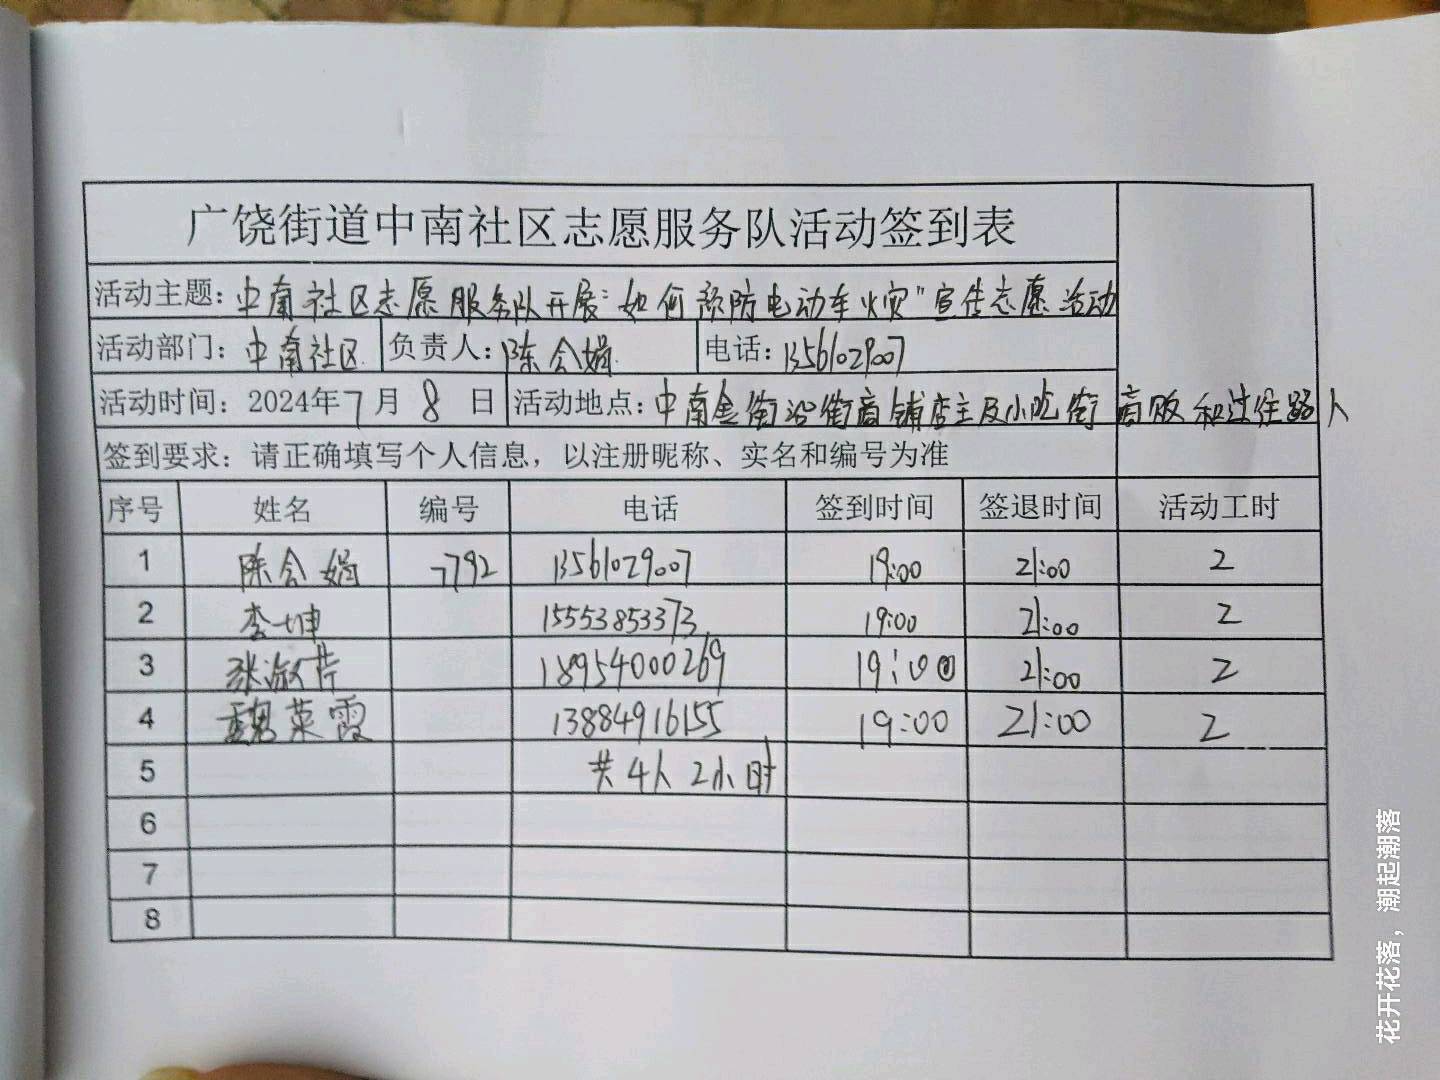 广饶街道中南社区志愿服务队活动签到表
活动主题：中南社区志愿服务队开展"如何预防电动车火灾"宣传志愿活动
活动部门：中南社区 负责人：陈会娟 电话：13561029007
活动时间：2024年7月8日 活动地点：中南金街沿街商铺店主及小吃街商贩和过往路人
签到要求：请正确填写个人信息，以注册昵称、实名和编号为准
序号 姓名 编号 电话 签到时间 签退时间 活动工时
1 陈会娟 7792 13561029007 19:00 21:00 2
2 李坤 15553853373 19:00 21:00 2
3 张淑芹 18954000269 19:00 21:00 2
4 魏荣霞 13884916155 19:00 21:00 2
5 共4人2小时
6
7
8
花开花落，潮起潮落